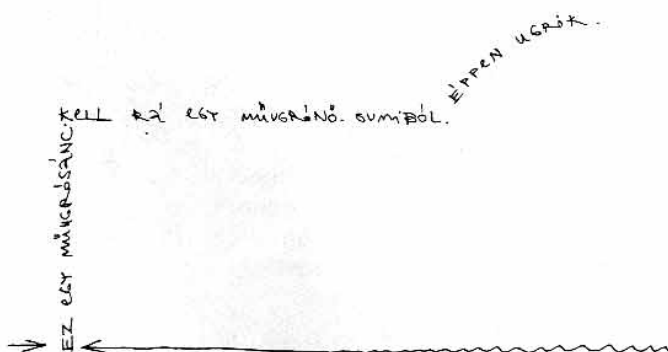 EZ EGY MŰUGRÓSÁNC.
KELL RÁ EGY MŰUGRÓNŐ. GUMIBÓL.
ÉPPEN UGRÓK.